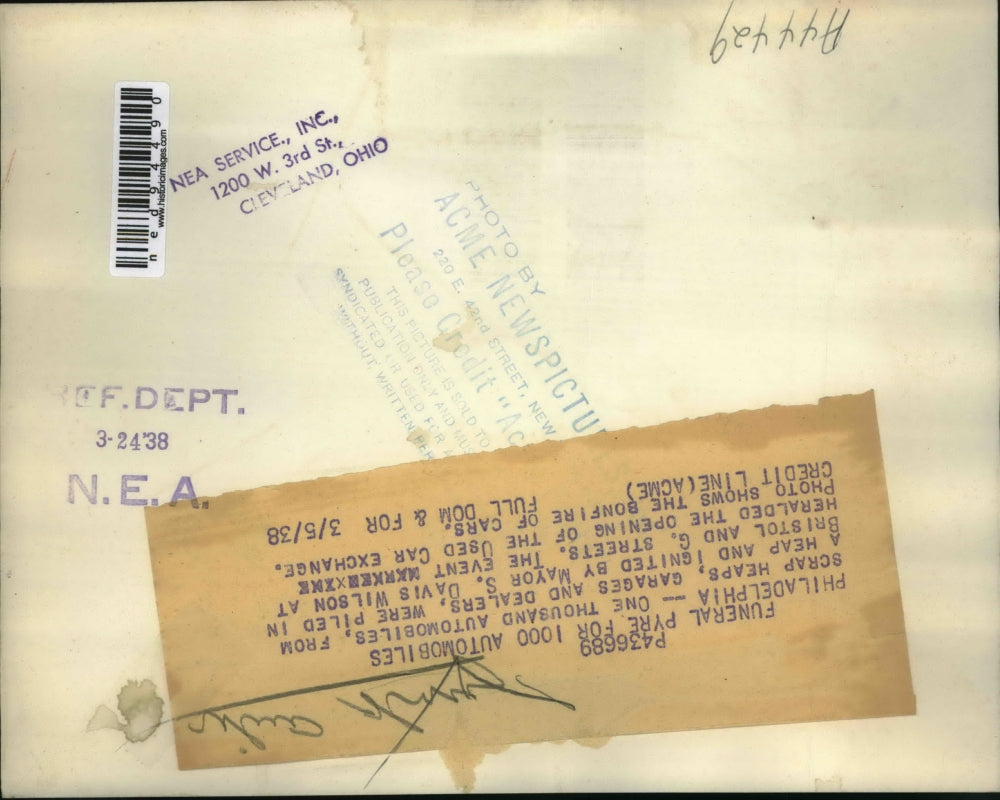 A44429
ned94490
www.historicimages.com
NEA SERVICE., INC.,
1200 W. 3rd St.,
CLEVELAND, OHIO
PHOTO BY
ACME NEWSPICTU
220 E. 42nd STREET, NEW
Please Credit "Ac
THIS PICTURE IS SOLD TO
PUBLICATION ONLY AND MUS
SYNDICATED OR USED FOR A
WITHOUT WRITTEN PER
REF. DEPT.
3-24'38
N.E.A.
P436689
FUNERAL PYRE FOR 1000 AUTOMOBILES
PHILADELPHIA -- ONE THOUSAND AUTOMOBILES, FROM
SCRAP HEAPS, GARAGES AND DEALERS, WERE PILED IN
A HEAP AND IGNITED BY MAYOR S. DAVIS WILSON AT
BRISTOL AND G. STREETS. THE EVENT
HERALDED THE OPENING OF THE USED CAR EXCHANGE.
PHOTO SHOWS THE BONFIRE OF CARS.
CREDIT LINE (ACME) FULL DOM & FOR 3/5/38